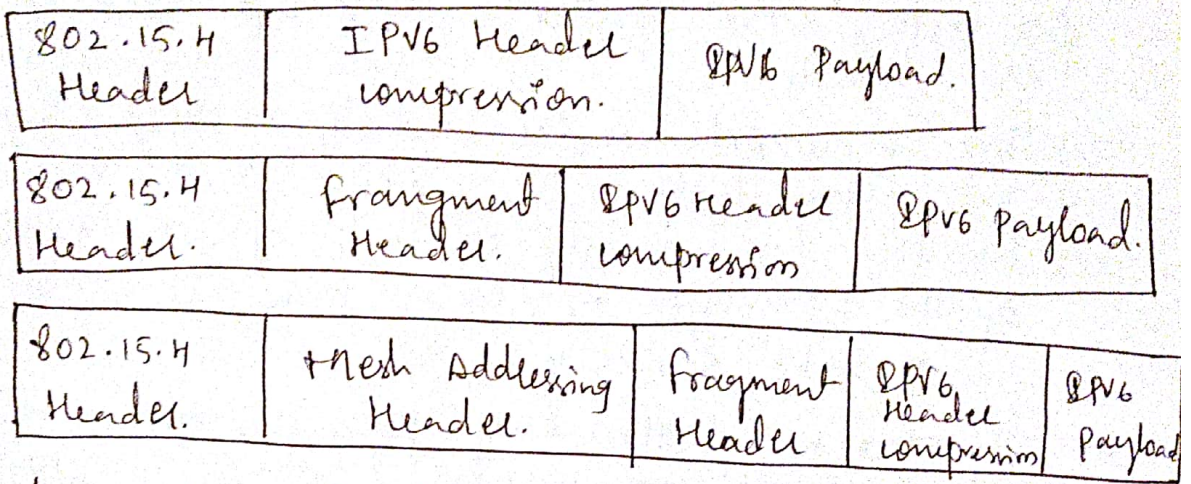 802.15.4 Header
IPV6 Header compression.
IPV6 Payload.
802.15.4 Header.
frangment Header.
IPV6 Header compression
IPV6 Payload.
802.15.4 Header.
Mesh Addressing Header.
fragment Header
IPV6 Header compression
IPV6 Payload